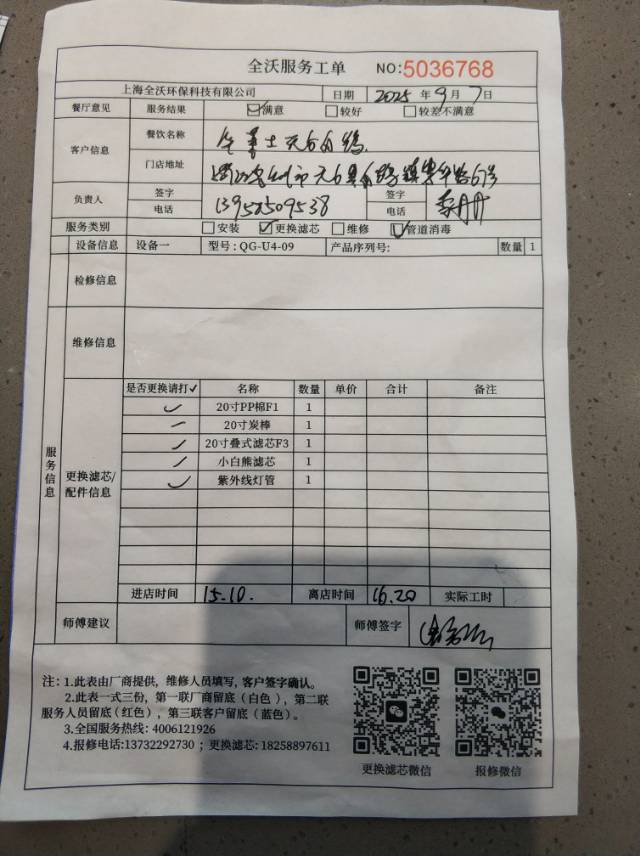 全沃服务工单 NO:5036768
上海全沃环保科技有限公司 日期 2025年9月7日
餐厅意见 服务结果 ☑满意 □较好 □较差不满意
客户信息 餐饮名称
门店地址
负责人 签字 签字
电话 13957509538 电话
服务类别 □安装 ☑更换滤芯 □维修 ☑管道消毒
设备信息 设备一 型号:QG-U4-09 产品序列号: 数量 1
检修信息
维修信息
服务信息
更换滤芯/配件信息
是否更换请打✓ 名称 数量 单价 合计 备注
✓ 20寸PP棉F1 1
20寸炭棒 1
✓ 20寸叠式滤芯F3 1
✓ 小白熊滤芯 1
✓ 紫外线灯管 1
进店时间 15.10. 离店时间 16.20 实际工时
师傅建议 师傅签字
注:1.此表由厂商提供,维修人员填写,客户签字确认。
2.此表一式三份,第一联厂商留底(白色),第二联
服务人员留底(红色),第三联客户留底(蓝色)。
3.全国服务热线:4006121926
4.报修电话:13732292730 ; 更换滤芯:18258897611
更换滤芯微信 报修微信